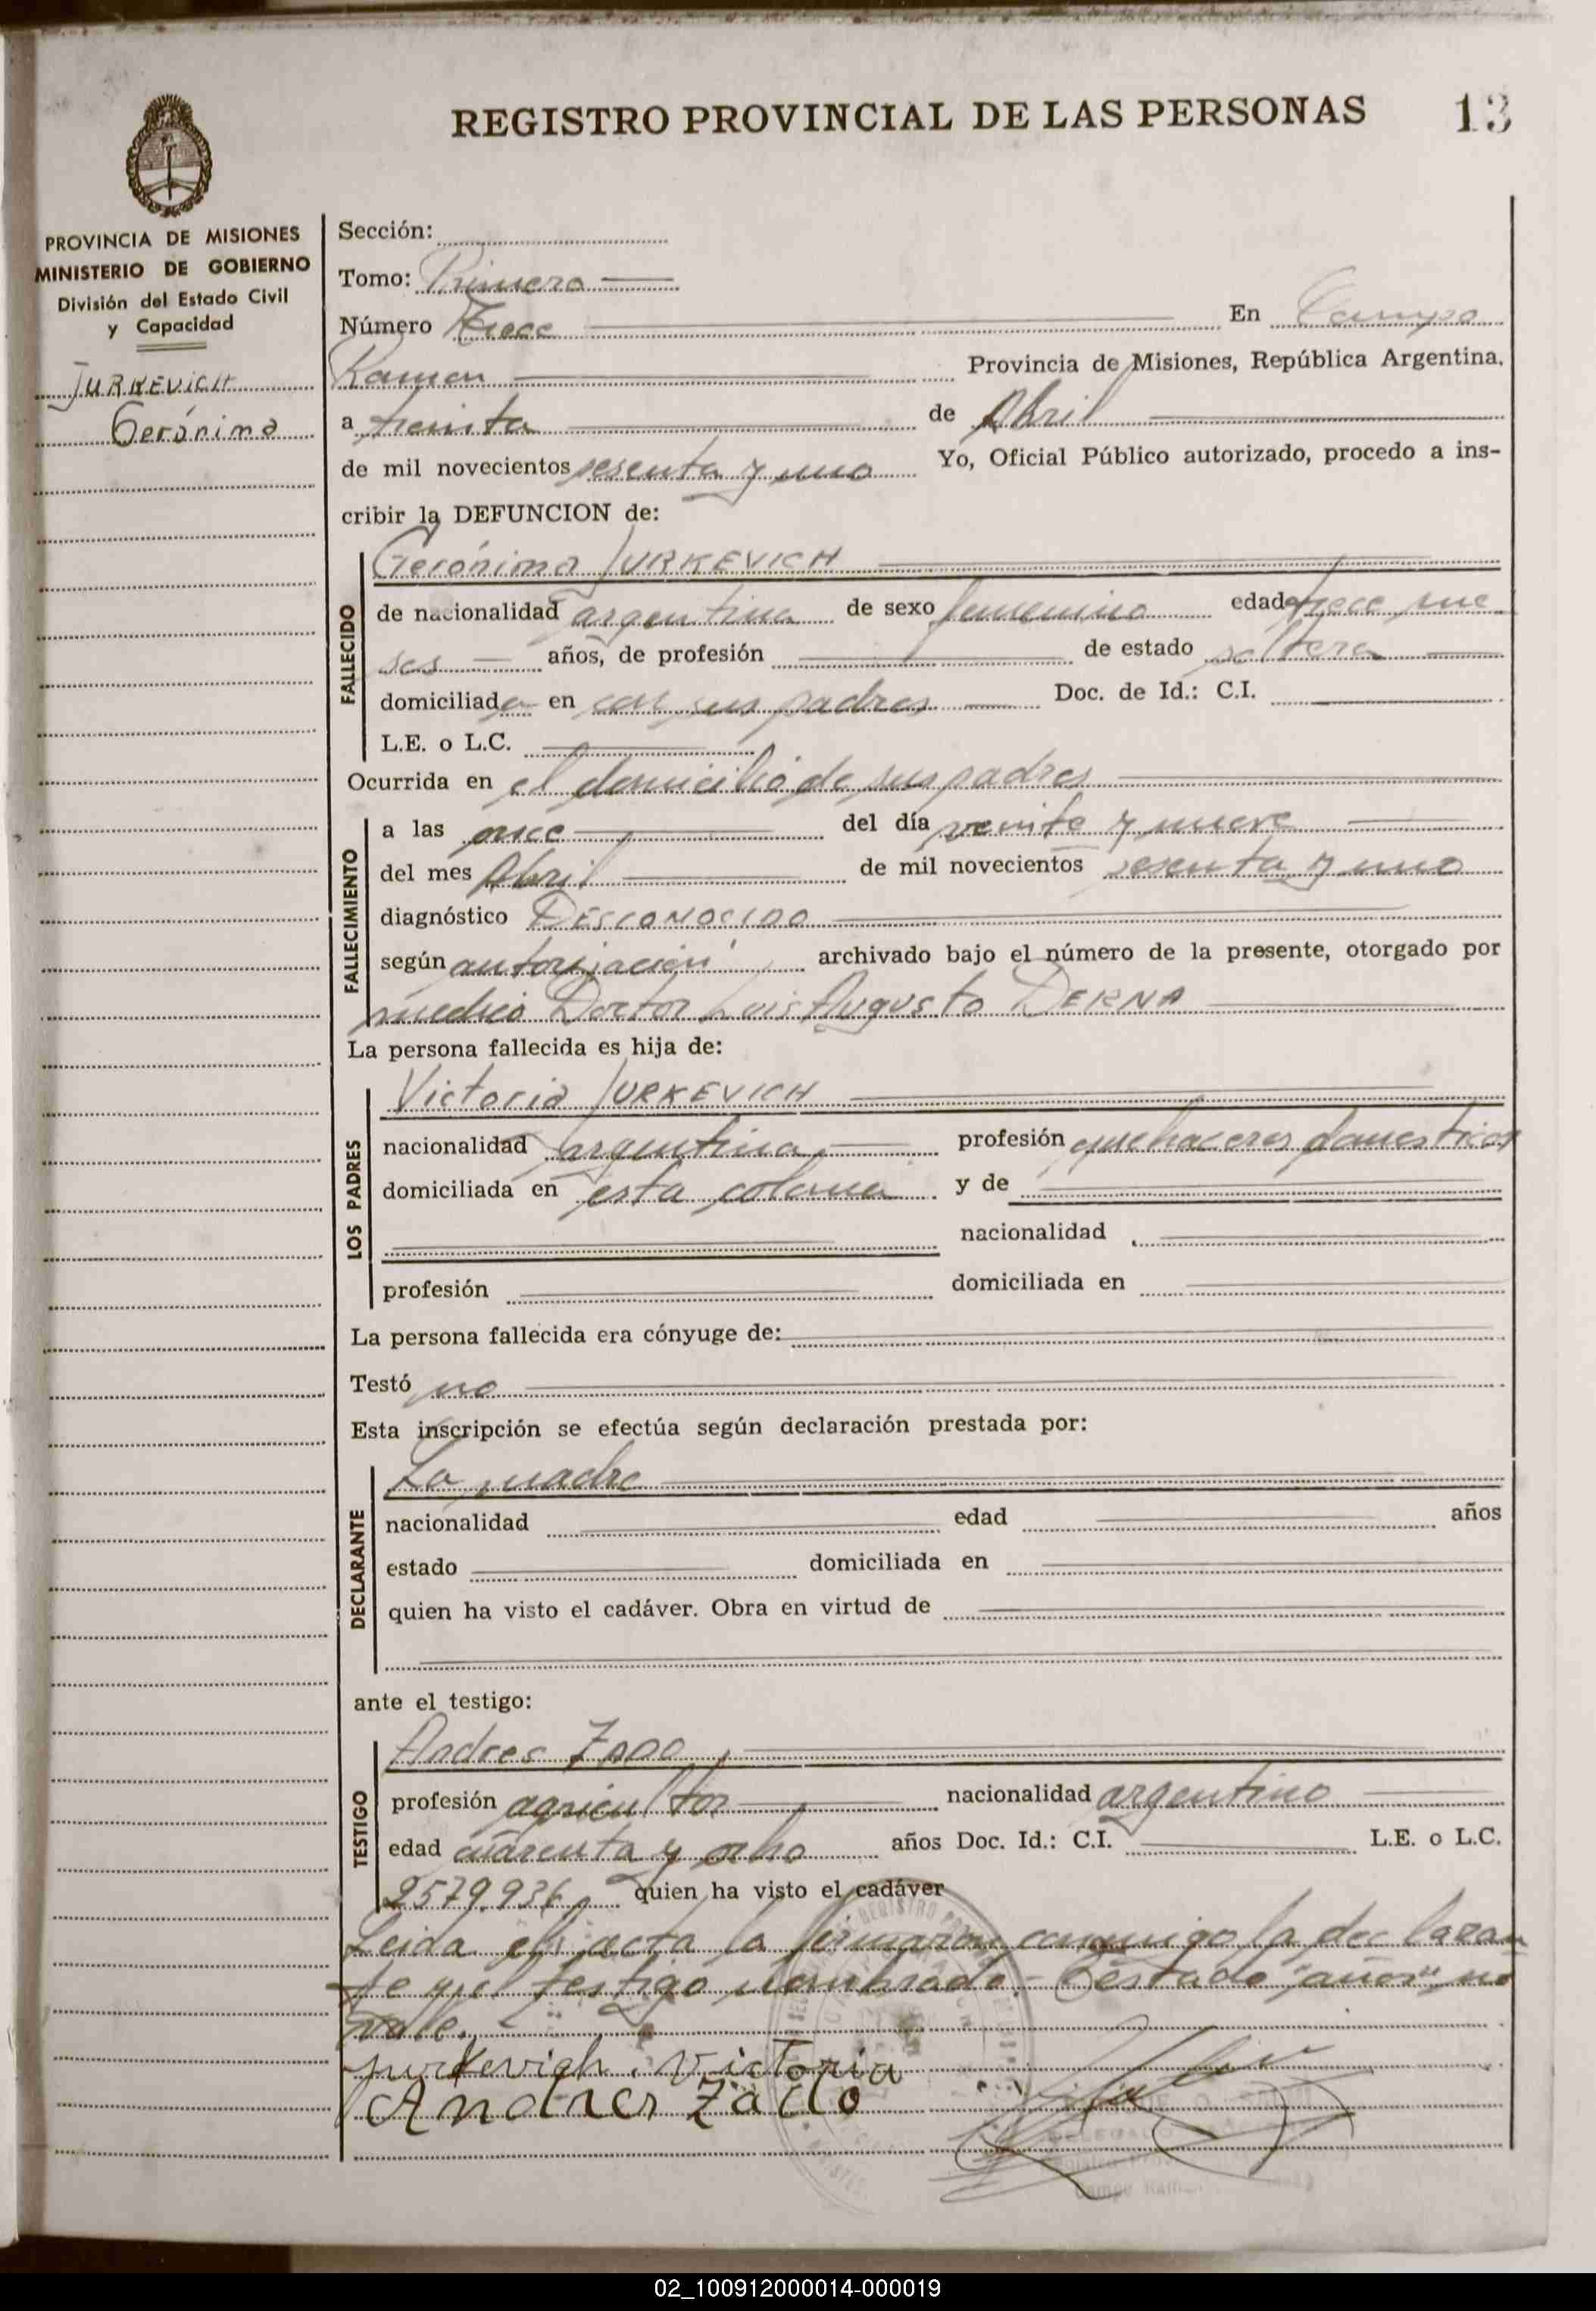 REGISTRO PROVINCIAL DE LAS PERSONAS 13
PROVINCIA DE MISIONES
MINISTERIO DE GOBIERNO
División del Estado Civil
y Capacidad
JURKEVICH
Gerónima
Sección:
Tomo: Primero
Número Trece En Campo
Ramon Provincia de Misiones, República Argentina,
a treinta de Abril
de mil novecientos sesenta y uno Yo, Oficial Público autorizado, procedo a ins-
cribir la DEFUNCION de:
FALLECIDO
Gerónima JURKEVICH
de nacionalidad argentina de sexo femenino edad trece me
ses años, de profesión de estado soltera
domiciliada en con sus padres Doc. de Id.: C.I.
L.E. o L.C.
Ocurrida en el domicilio de sus padres
FALLECIMIENTO
a las once del día veinte y nueve
del mes Abril de mil novecientos sesenta y uno
diagnóstico DESCONOCIDO
según autorización archivado bajo el número de la presente, otorgado por
medico Doctor Luis Augusto DERNA
La persona fallecida es hija de:
LOS PADRES
Victoria JURKEVICH
nacionalidad argentina profesión quehaceres domesticos
domiciliada en esta colonia y de
nacionalidad
profesión domiciliada en
La persona fallecida era cónyuge de:
Testó no
Esta inscripción se efectúa según declaración prestada por:
DECLARANTE
La madre
nacionalidad edad años
estado domiciliada en
quien ha visto el cadáver. Obra en virtud de
ante el testigo:
TESTIGO
Andres ZADO
profesión agricultor nacionalidad argentino
edad cuarenta y ocho años Doc. Id.: C.I. L.E. o L.C.
2579.936 quien ha visto el cadáver
Leida el acta la firmaron conmigo la declaran
te y el testigo nombrado.- Testado "años" no
vale.
Jurkevich. Victoria
Andres Zado
02_100912000014-000019